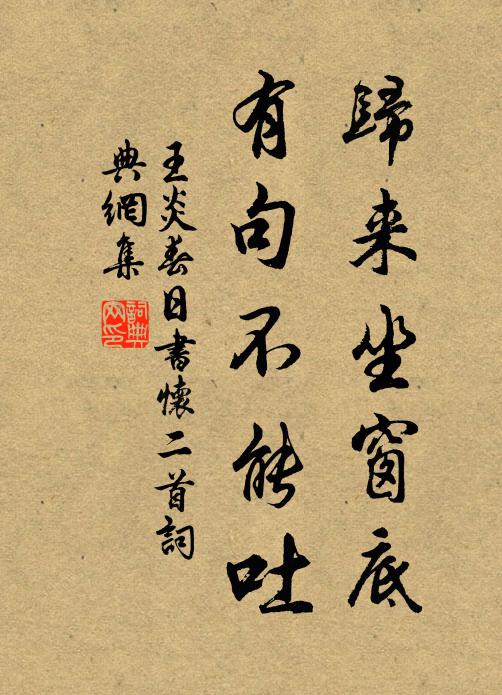 歸来坐窗底
有句不能吐
王炎春日書懷二首詞
典網集
詞典網印